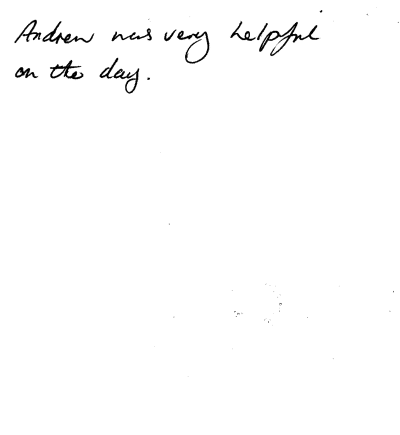 Andrew was very helpful
on the day.